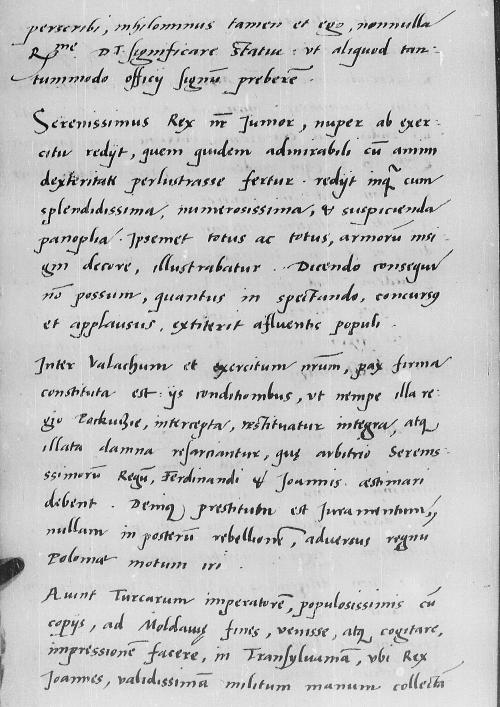 perscribi, nihilominus tamen et ego, nonnulla
R^me D.T. significare statui ut aliquod tan-
tummodo officij signũ preberẽ
Serenissimus Rex nr̃ Junior, nuper ab exer-
citu redijt, quem quidem admirabili cũ animi
dexteritate perlustrasse fertur. redijt inq̃ cum
splendidissima, numerosissima, & suspicienda
panoplia. Ipsemet totus ac totus, armorũ insi
gni decore, illustrabatur. Dicendo consequi
nõ possum, quantus in spectando, concursus
et applausus, extiterit affluentis populi.
Inter Valachum et exercitum nr̃um, pax firma
constituta est ijs conditionibus, ut nempe illa re
gio Pockuẞie, intercepta, restituatur integra, atq̃
illata damna resarciantur, quę arbitrio Serenis-
ssimorũ Regũ, Ferdinandi & Joannis. æstimari
debent. Deniq̃ prestitutũ est Juramentum,
nullam in posterũ rebellionẽ, adversus regnũ
Poloniæ motum iri.
Aiunt Turcarum imperatorẽ, populosissimis cũ
copijs, ad Moldavię fines, venisse, atq̃ cogitare,
impressionẽ facere, in Transylvaniã, ubi Rex
Joannes, validissimã militum manum collectã